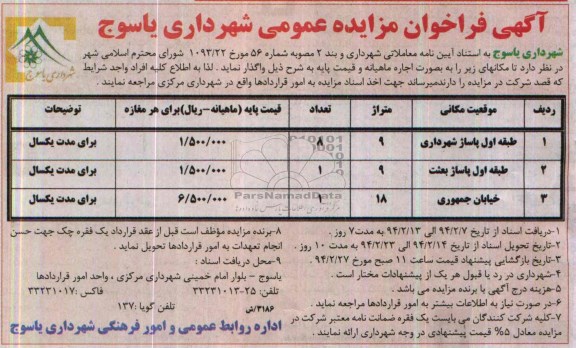 آگهی فراخوان مزایده عمومی شهرداری یاسوج
شهرداری یاسوج
شهرداری یاسوج به استناد آیین نامه معاملاتی شهرداری و بند ۲ مصوبه شماره ۵۶ مورخ ۱۰۹۳/۲۲ شورای محترم اسلامی شهر
در نظر دارد تا مکانهای زیر را به بصورت اجاره ماهیانه و قیمت پایه به شرح ذیل واگذار نماید . لذا به اطلاع کلیه افراد واجد شرایط
که قصد شرکت در مزایده را دارند میرساند جهت اخذ اسناد مزایده به امور قراردادها واقع در شهرداری مرکزی مراجعه نمایند .
ردیف موقعیت مکانی متراژ تعداد قیمت پایه (ماهیانه-ریال) برای هر مغازه توضیحات
۱ طبقه اول پاساژ شهرداری ۹ ۸ ۱/۵۰۰/۰۰۰ برای مدت یکسال
۲ طبقه اول پاساژ بعثت ۹ ۱ ۱/۵۰۰/۰۰۰ برای مدت یکسال
۳ خیابان جمهوری ۱۸ ۱ ۶/۵۰۰/۰۰۰ برای مدت یکسال
ParsNamadData
۱-دریافت اسناد از تاریخ ۹۴/۲/۷ الی ۹۴/۲/۱۳ به مدت۷ روز .
۲-تاریخ تحویل اسناد از تاریخ ۹۴/۲/۱۴ الی ۹۴/۲/۲۳ به مدت ۱۰ روز .
۳-تاریخ بازگشایی پیشنهاد قیمت ساعت ۱۱ صبح مورخ ۹۴/۲/۲۷
۴-شهرداری در رد یا قبول هر یک از پیشنهادات مختار است .
۵-هزینه درج آگهی با برنده مزایده می باشد .
۶-در صورت نیاز به اطلاعات بیشتر به امور قراردادها مراجعه نمایید .
۷-کلیه شرکت کنندگان می بایست یک فقره ضمانت نامه معتبر شرکت در
مزایده معادل ۵% قیمت پیشنهادی در وجه شهرداری ارائه نمایند .
۸-برنده مزایده مؤظف است قبل از عقد قرارداد یک فقره چک جهت حسن
انجام تعهدات به امور قراردادها تحویل نماید .
۹-محل دریافت اسناد :
یاسوج - بلوار امام خمینی شهرداری مرکزی ، واحد امور قراردادها
تلفن: ۲۵-۳۳۲۳۱۰۱۳ فاکس : ۳۳۲۳۱۰۱۷
تلفن گویا : ۱۳۷
۴۱۸۶/ش
اداره روابط عمومی و امور فرهنگی شهرداری یاسوج